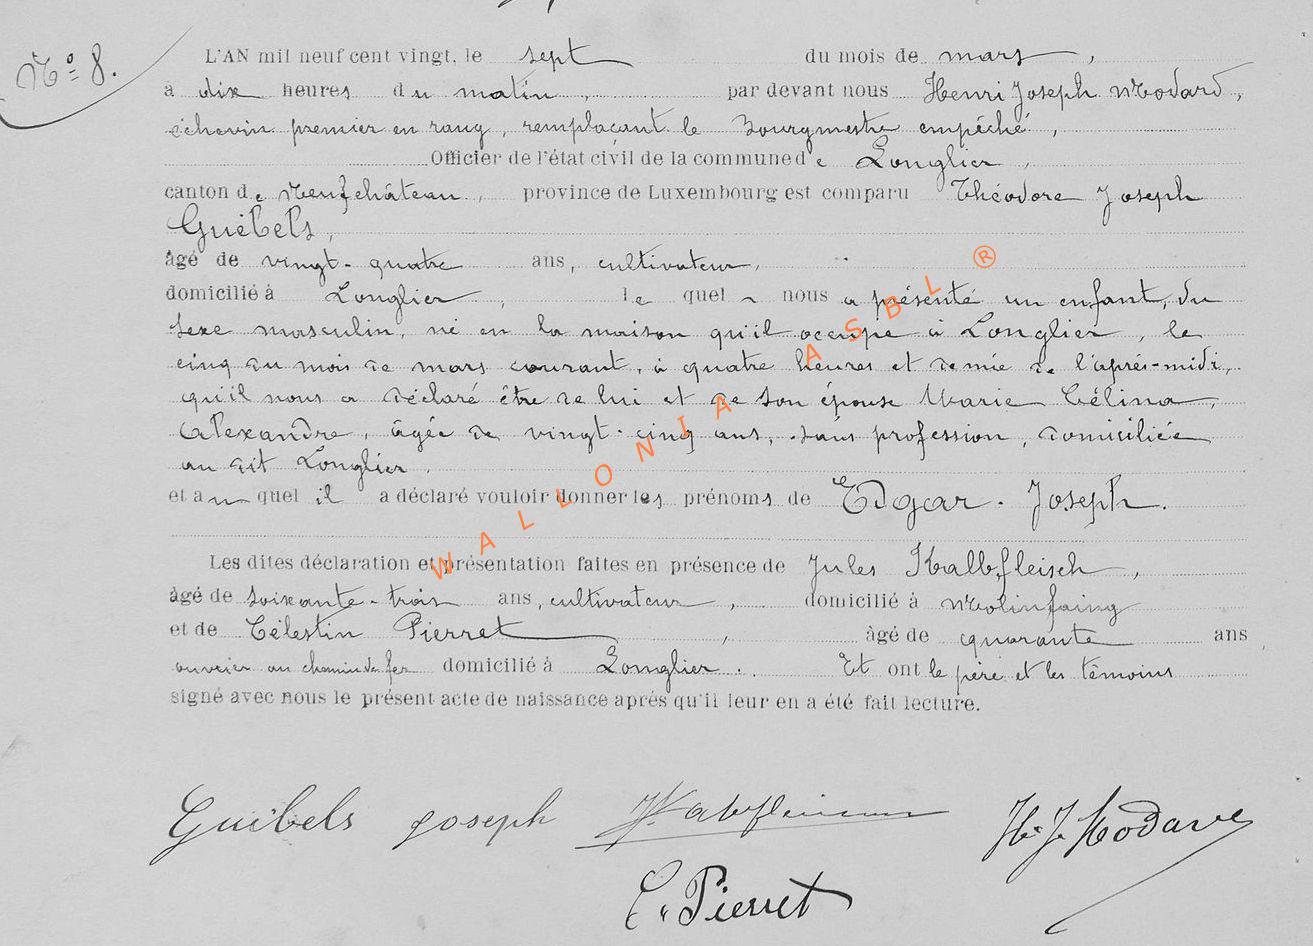 No 8.
L'AN mil neuf cent vingt, le sept du mois de mars,
à dix heures du matin, par devant nous Henri Joseph Modard,
échevin premier en rang, remplaçant le Bourgmestre empêché,
Officier de l'état civil de la commune de Longlier,
canton de Neufchâteau, province de Luxembourg est comparu Théodore Joseph
Guébels,
âgé de vingt-quatre ans, cultivateur,
domicilié à Longlier, lequel nous a présenté un enfant, du
sexe masculin, né en la maison qu'il occupe à Longlier, le
cinq du mois de mars courant, à quatre heures et demie de l'après-midi,
qu'il nous a déclaré être de lui et de son épouse Marie Célina,
Alexandre, âgée de vingt-cinq ans, sans profession, domiciliée
au dit Longlier.
et auquel il a déclaré vouloir donner les prénoms de Edgar-Joseph.
Les dites déclaration et présentation faites en présence de Jules Kalbfleisch,
âgé de soixante-trois ans, cultivateur, domicilié à Molinfaing
et de Célestin Pierret, âgé de quarante ans
ouvrier au chemin de fer domicilié à Longlier. Et ont le père et les témoins
signé avec nous le présent acte de naissance après qu'il leur en a été fait lecture.
Guébels Joseph H. J. Modave
C. Pierret
WALLONIA ASBL ®